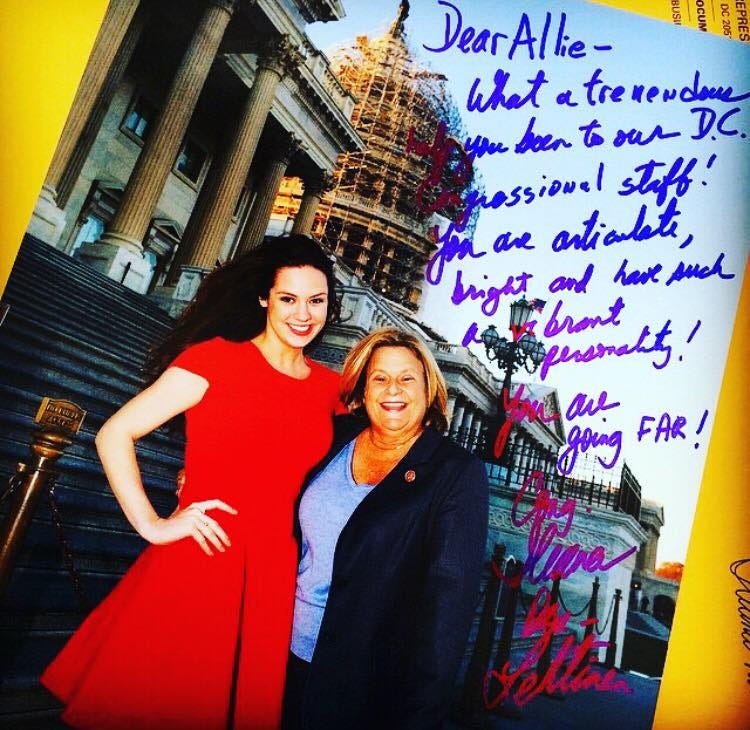 Dear Allie—
What a tremendous
help you been to our D.C.
Congressional staff!
You are articulate,
bright and have such
a vibrant
personality!
You are
going FAR!
Cong.
Ileana
Ros-
Lehtinen
EPRES
DC 205
OCUM
BUSI